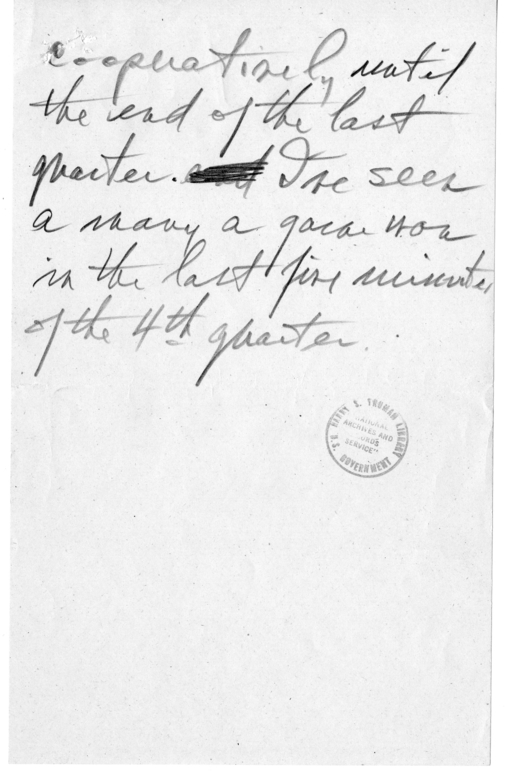 cooperatively until
the end of the last
quarter. and I've seen
a many a game won
in the last five minutes
of the 4th quarter.
HARRY S. TRUMAN LIBRARY
NATIONAL
ARCHIVES AND
RECORDS
SERVICE
U.S. GOVERNMENT